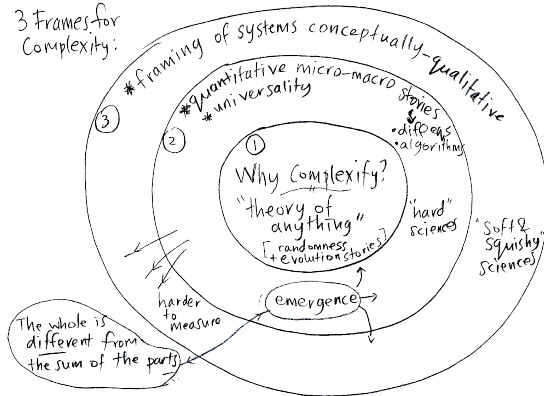 3 Frames for
Complexity:
③
*framing of systems conceptually-qualitative
②
*quantitative micro-macro stories
* universality
• diffeqs
• algorithms
①
Why Complexify?
"theory of
anything"
[randomness
+ evolution stories]
"hard"
sciences
"Soft &
Squishy"
Sciences
harder
to
measure
emergence
The whole is
different from
the sum of the parts